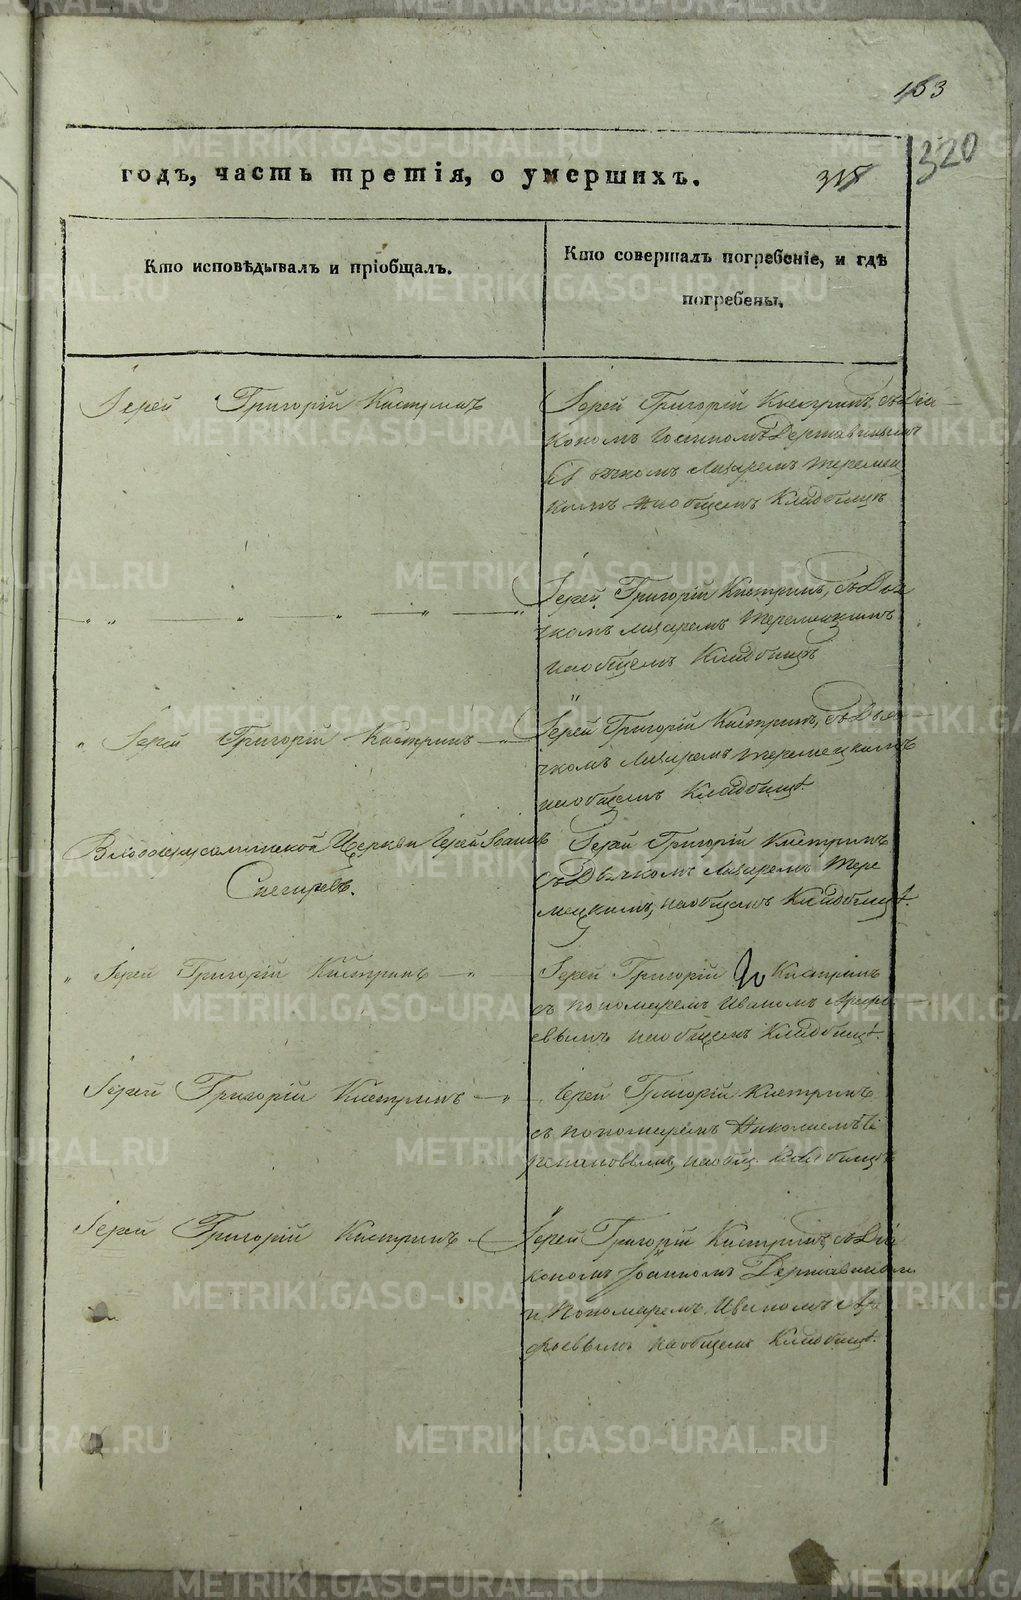 153
320
годъ, часть третія, о умершихъ.
318
Кто исповѣдывалъ и пріобщалъ.
Кто совершалъ погребеніе, и гдѣ
погребены.
Іерей Григорій Кастринъ
Іерей Григорій Кастринъ, съ Діа-
кономъ Іоанномъ Державинымъ
Лазаремъ Теремец
кимъ на общемъ Кладбищѣ
Іерей Григорій Кастринъ, съ Дья
чкомъ Лазаремъ Теремецкимъ
на общемъ Кладбищѣ
Іерей Григорій Кастринъ
Іерей Григорій Кастринъ, съ Дья
чкомъ Лазаремъ Теремецкимъ
на общемъ Кладбищѣ.
Церкви Іерей Іоаннъ
Снегиревъ.
Іерей Григорій Кастринъ
съ Дьячкомъ Лазаремъ Тере
мецкимъ, на общемъ Кладбищѣ.
Іерей Григорій Кастринъ
Іерей Григорій Кастринъ
съ пономаремъ Иваномъ Арефь
евымъ на общемъ Кладбищѣ.
Іерей Григорій Кастринъ
Іерей Григорій Кастринъ
съ пономаремъ Николаемъ
на общ. Кладбищѣ
Іерей Григорій Кастринъ
Іерей Григорій Кастринъ, съ Діа
кономъ Іоанномъ Державинымъ
и Пономаремъ Иваномъ Аре
фьевымъ на общемъ Кладбищѣ.
METRIKI.GASO-URAL.RU